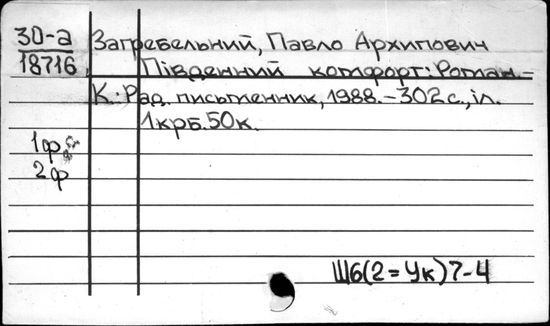 30-а
18716
Загребельний, Павло Архипович
Південний комфорт: Роман.-
К.: Рад. письменник, 1988.-302с., іл.
1крб.50к.
1ф.
2ф
Ш6(2=Ук)7-4